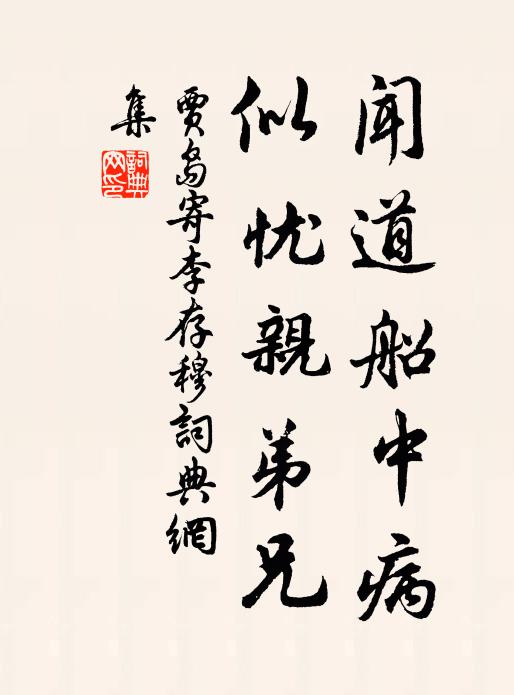 闻道船中病
似忧親弟兄
賈島寄李存穆詞典網
集
詞典
网印